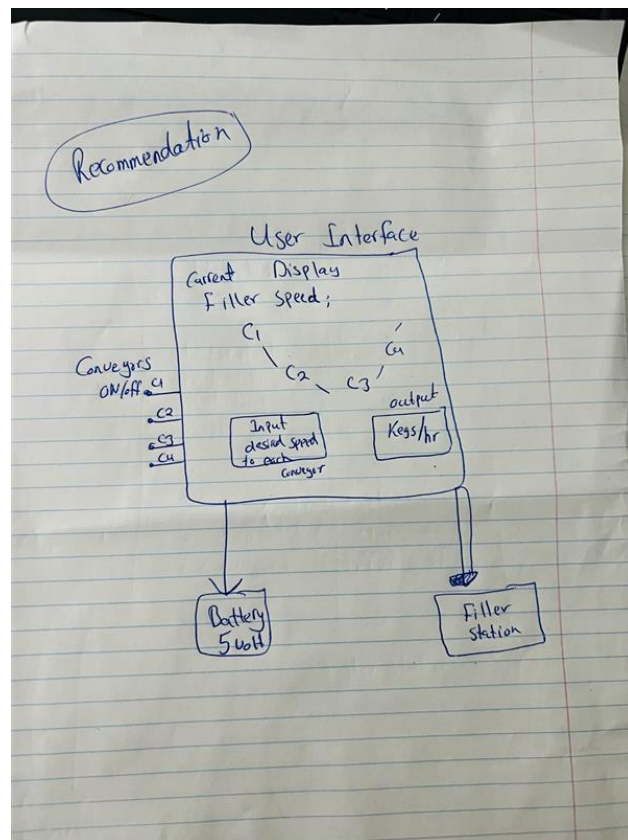 Recommendation
User Interface
Current Display
Filler Speed;
C1
C2
C3
C4
Conveyors
ON/off C1
C2
C3
C4
Input
desired speed
to each
conveyor
output
Kegs/hr
Battery
5 volt
Filler
station